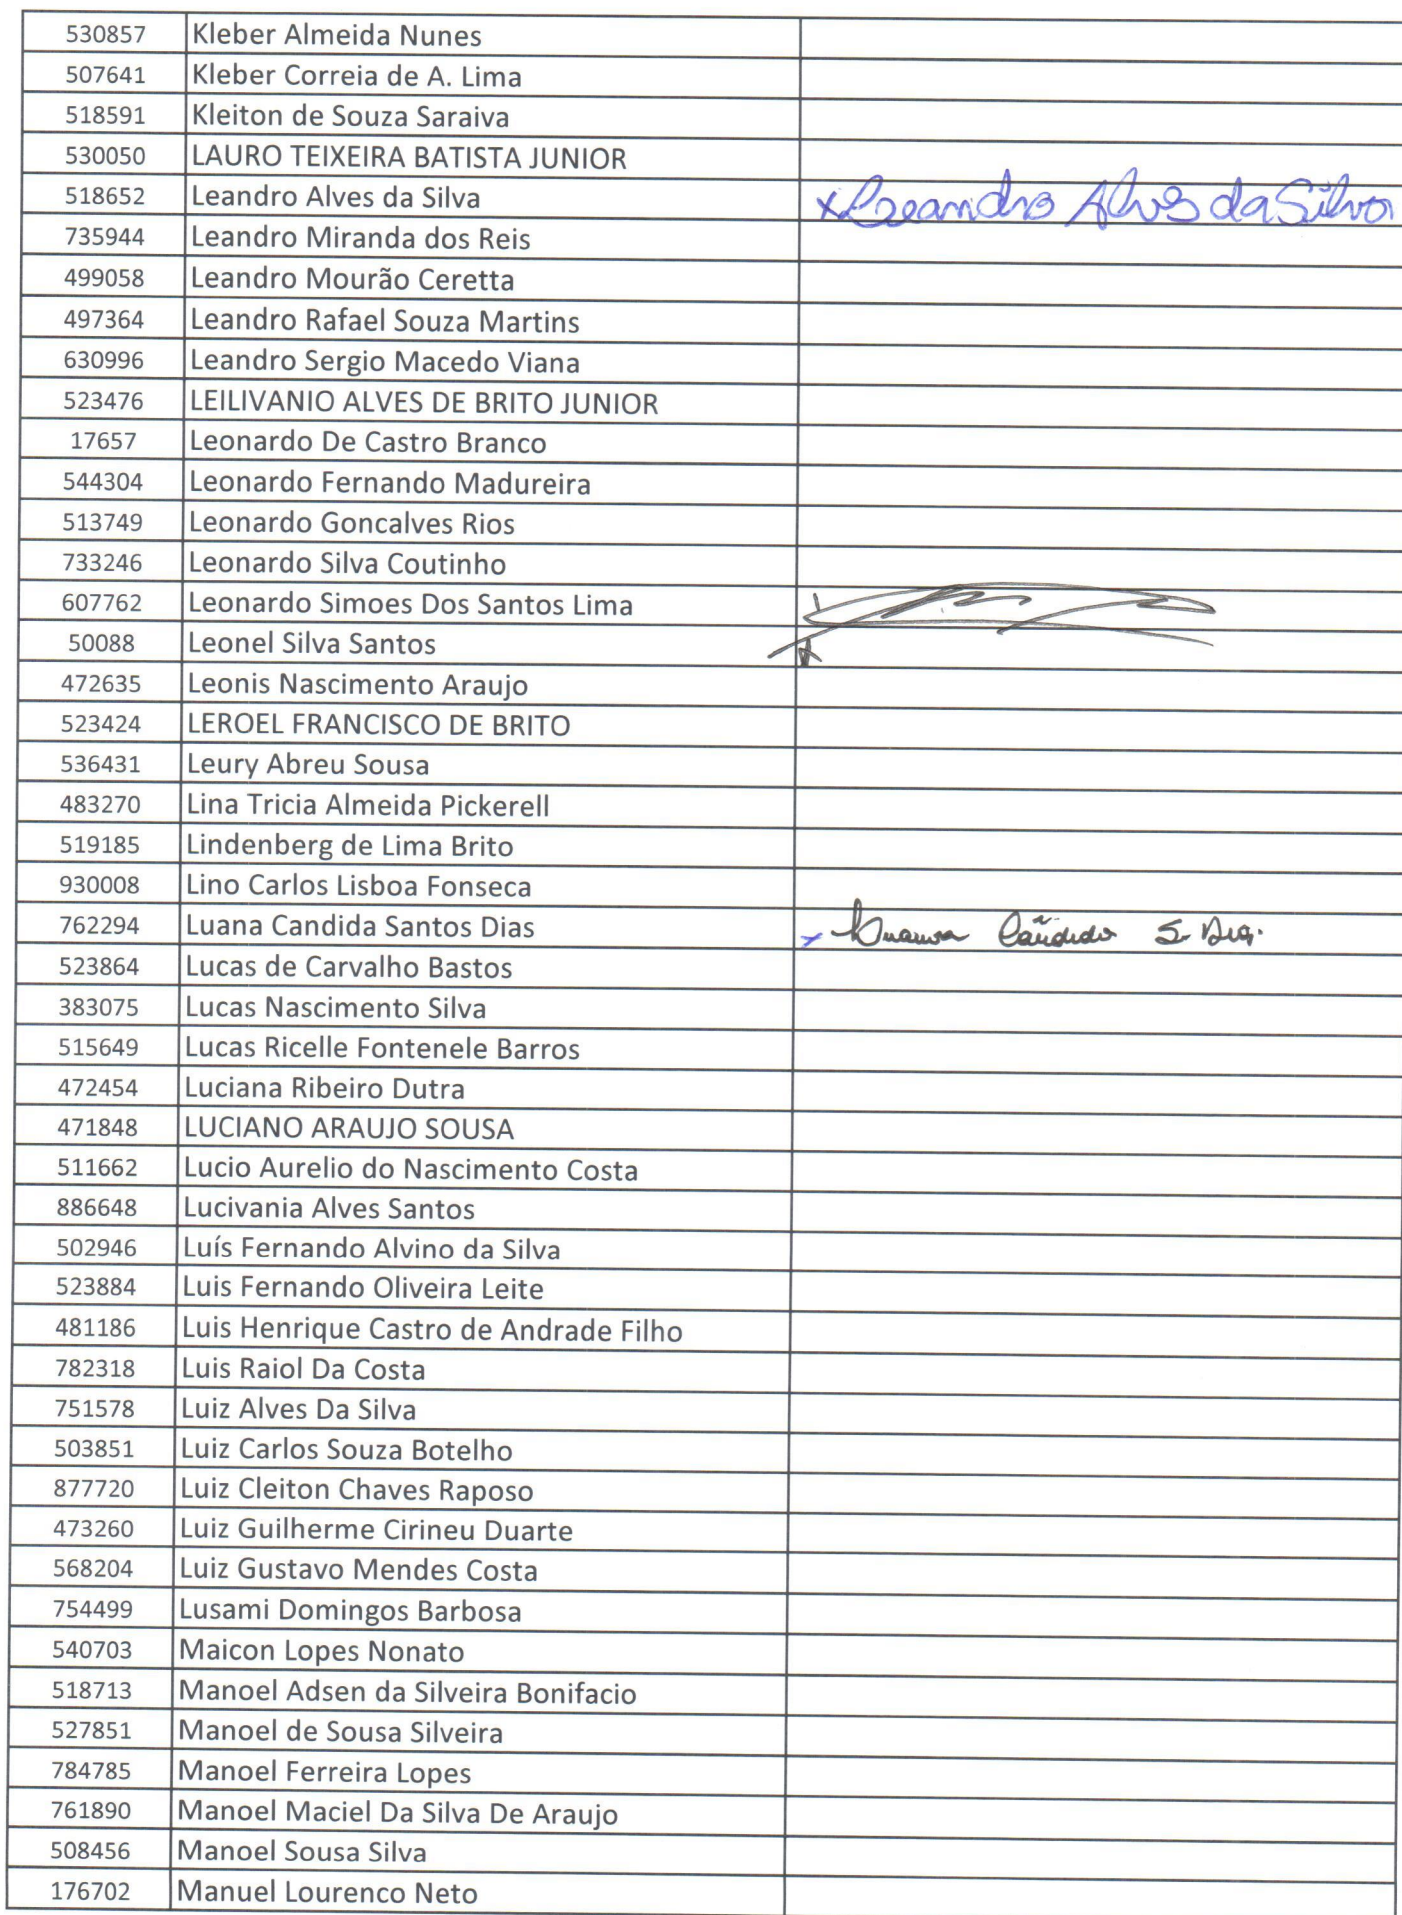 530857 Kleber Almeida Nunes
507641 Kleber Correia de A. Lima
518591 Kleiton de Souza Saraiva
530050 LAURO TEIXEIRA BATISTA JUNIOR
518652 Leandro Alves da Silva x Leandro Alves da Silva
735944 Leandro Miranda dos Reis
499058 Leandro Mourão Ceretta
497364 Leandro Rafael Souza Martins
630996 Leandro Sergio Macedo Viana
523476 LEILIVANIO ALVES DE BRITO JUNIOR
17657 Leonardo De Castro Branco
544304 Leonardo Fernando Madureira
513749 Leonardo Goncalves Rios
733246 Leonardo Silva Coutinho
607762 Leonardo Simoes Dos Santos Lima
50088 Leonel Silva Santos
472635 Leonis Nascimento Araujo
523424 LEROEL FRANCISCO DE BRITO
536431 Leury Abreu Sousa
483270 Lina Tricia Almeida Pickerell
519185 Lindenberg de Lima Brito
930008 Lino Carlos Lisboa Fonseca
762294 Luana Candida Santos Dias x Luana Cândida S. Dias
523864 Lucas de Carvalho Bastos
383075 Lucas Nascimento Silva
515649 Lucas Ricelle Fontenele Barros
472454 Luciana Ribeiro Dutra
471848 LUCIANO ARAUJO SOUSA
511662 Lucio Aurelio do Nascimento Costa
886648 Lucivania Alves Santos
502946 Luís Fernando Alvino da Silva
523884 Luis Fernando Oliveira Leite
481186 Luis Henrique Castro de Andrade Filho
782318 Luis Raiol Da Costa
751578 Luiz Alves Da Silva
503851 Luiz Carlos Souza Botelho
877720 Luiz Cleiton Chaves Raposo
473260 Luiz Guilherme Cirineu Duarte
568204 Luiz Gustavo Mendes Costa
754499 Lusami Domingos Barbosa
540703 Maicon Lopes Nonato
518713 Manoel Adsen da Silveira Bonifacio
527851 Manoel de Sousa Silveira
784785 Manoel Ferreira Lopes
761890 Manoel Maciel Da Silva De Araujo
508456 Manoel Sousa Silva
176702 Manuel Lourenco Neto